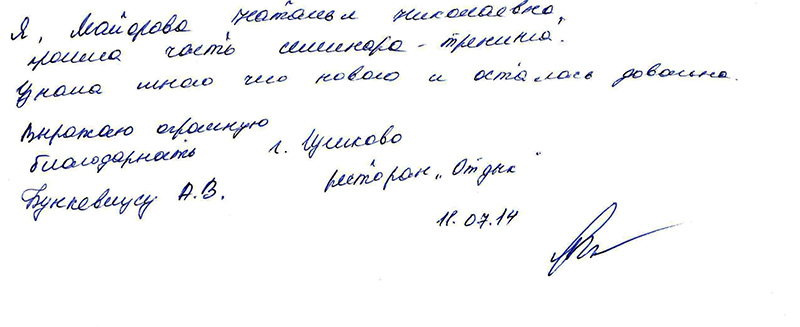 Я, Майорова Наталья Николаевна,
прошла часть семинара-тренинга.
Узнала много чего нового и осталась довольна.
Выражаю огромную
благодарность г.
Бункевичусу А.В. ресторан „Отдых"
11.07.14